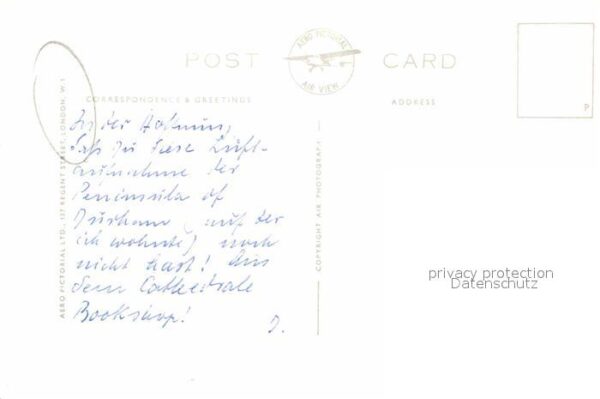 POST CARD
AERO PICTORIAL
AIR VIEW
CORRESPONDENCE & GREETINGS
ADDRESS
P
In der Hoffnung,
daß Du diese Luft-
aufnahme der
Peninsula of
Durham (auf der
ich wohnte) noch
nicht hast! Aus
dem Cathedrale
Bookshop!
J.
AERO PICTORIAL LTD., 137 REGENT STREET, LONDON, W.1
COPYRIGHT AIR PHOTOGRAPH
privacy protection
Datenschutz